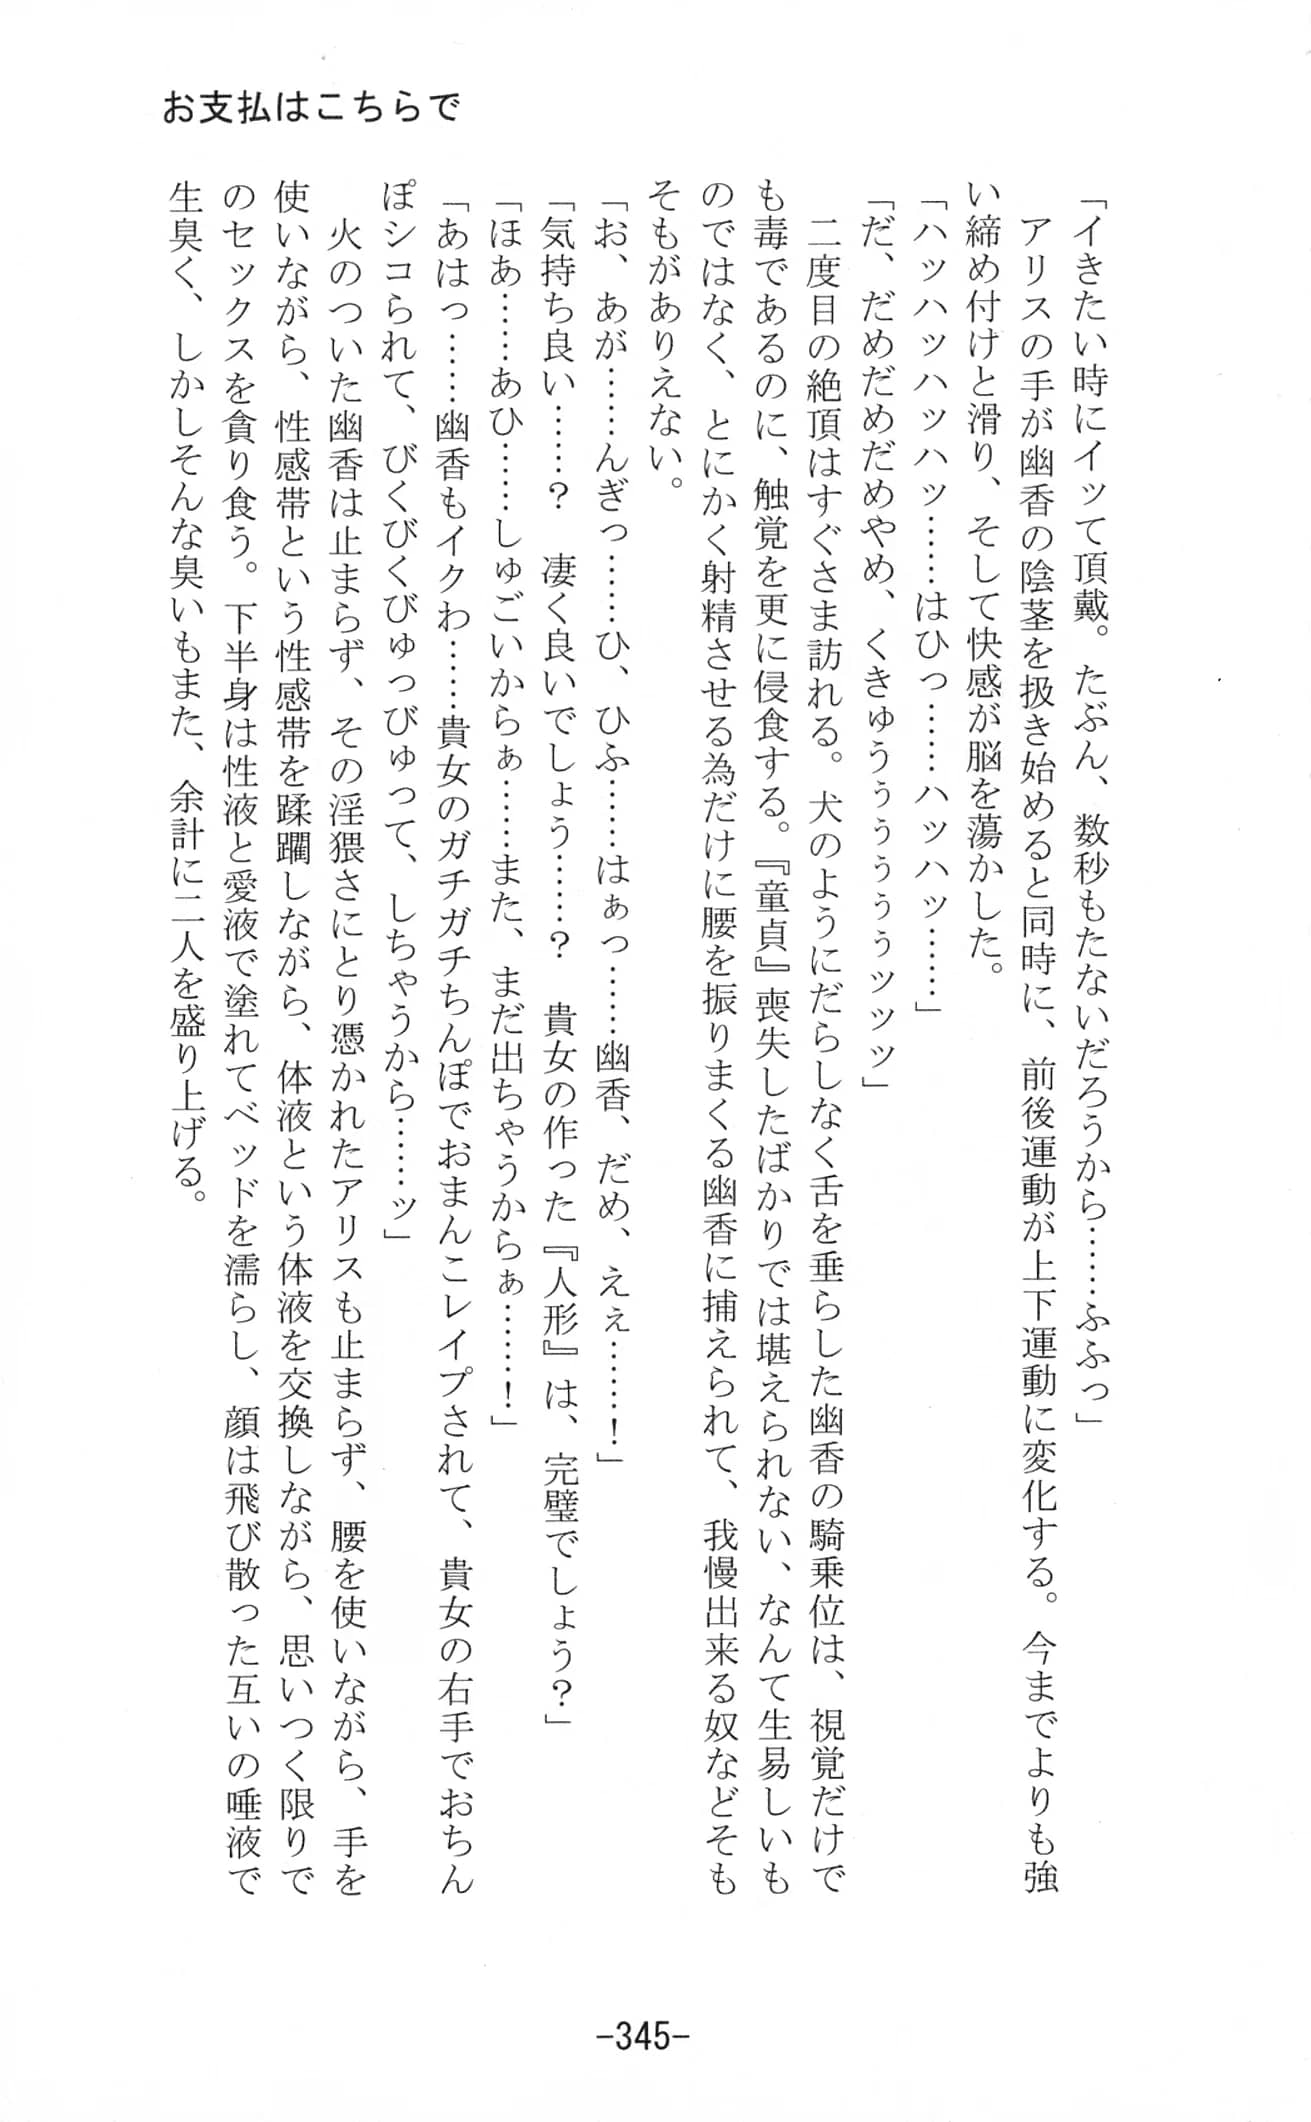 お支払はこちらで
「イきたい時にイッて頂戴。たぶん、数秒もたないだろうから……ふふっ」
　アリスの手が幽香の陰茎を扱き始めると同時に、前後運動が上下運動に変化する。今までよりも強
い締め付けと滑り、そして快感が脳を蕩かした。
「ハッハッハッハッ……はひっ……ハッハッ……」
「だ、だめだめだめやめ、くきゅうぅぅぅぅぅッッッ」
　二度目の絶頂はすぐさま訪れる。犬のようにだらしなく舌を垂らした幽香の騎乗位は、視覚だけで
も毒であるのに、触覚を更に侵食する。『童貞』喪失したばかりでは堪えられない、なんて生易しいも
のではなく、とにかく射精させる為だけに腰を振りまくる幽香に捕えられて、我慢出来る奴などそも
そもがありえない。
「お、あが……んぎっ……ひ、ひふ……はぁっ……幽香、だめ、えぇ……！」
「気持ち良い……？　凄く良いでしょう……？　貴女の作った『人形』は、完璧でしょう？」
「ほあ……あひ……しゅごいからぁ……また、まだ出ちゃうからぁ……！」
「あはっ……幽香もイクわ……貴女のガチガチちんぽでおまんこレイプされて、貴女の右手でおちん
ぽシコられて、びくびくびゅっびゅって、しちゃうから……ッ」
　火のついた幽香は止まらず、その淫猥さにとり憑かれたアリスも止まらず、腰を使いながら、手を
使いながら、性感帯という性感帯を蹂躙しながら、体液という体液を交換しながら、思いつく限りで
のセックスを貪り食う。下半身は性液と愛液で塗れてベッドを濡らし、顔は飛び散った互いの唾液で
生臭く、しかしそんな臭いもまた、余計に二人を盛り上げる。
-345-